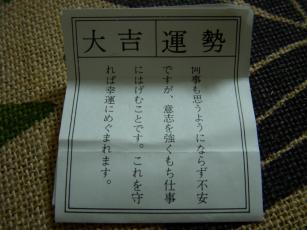 大吉運勢
何事も思うようにならず不安
ですが、意志を強くもち仕事
にはげむことです。これを守
れば幸運にめぐまれます。